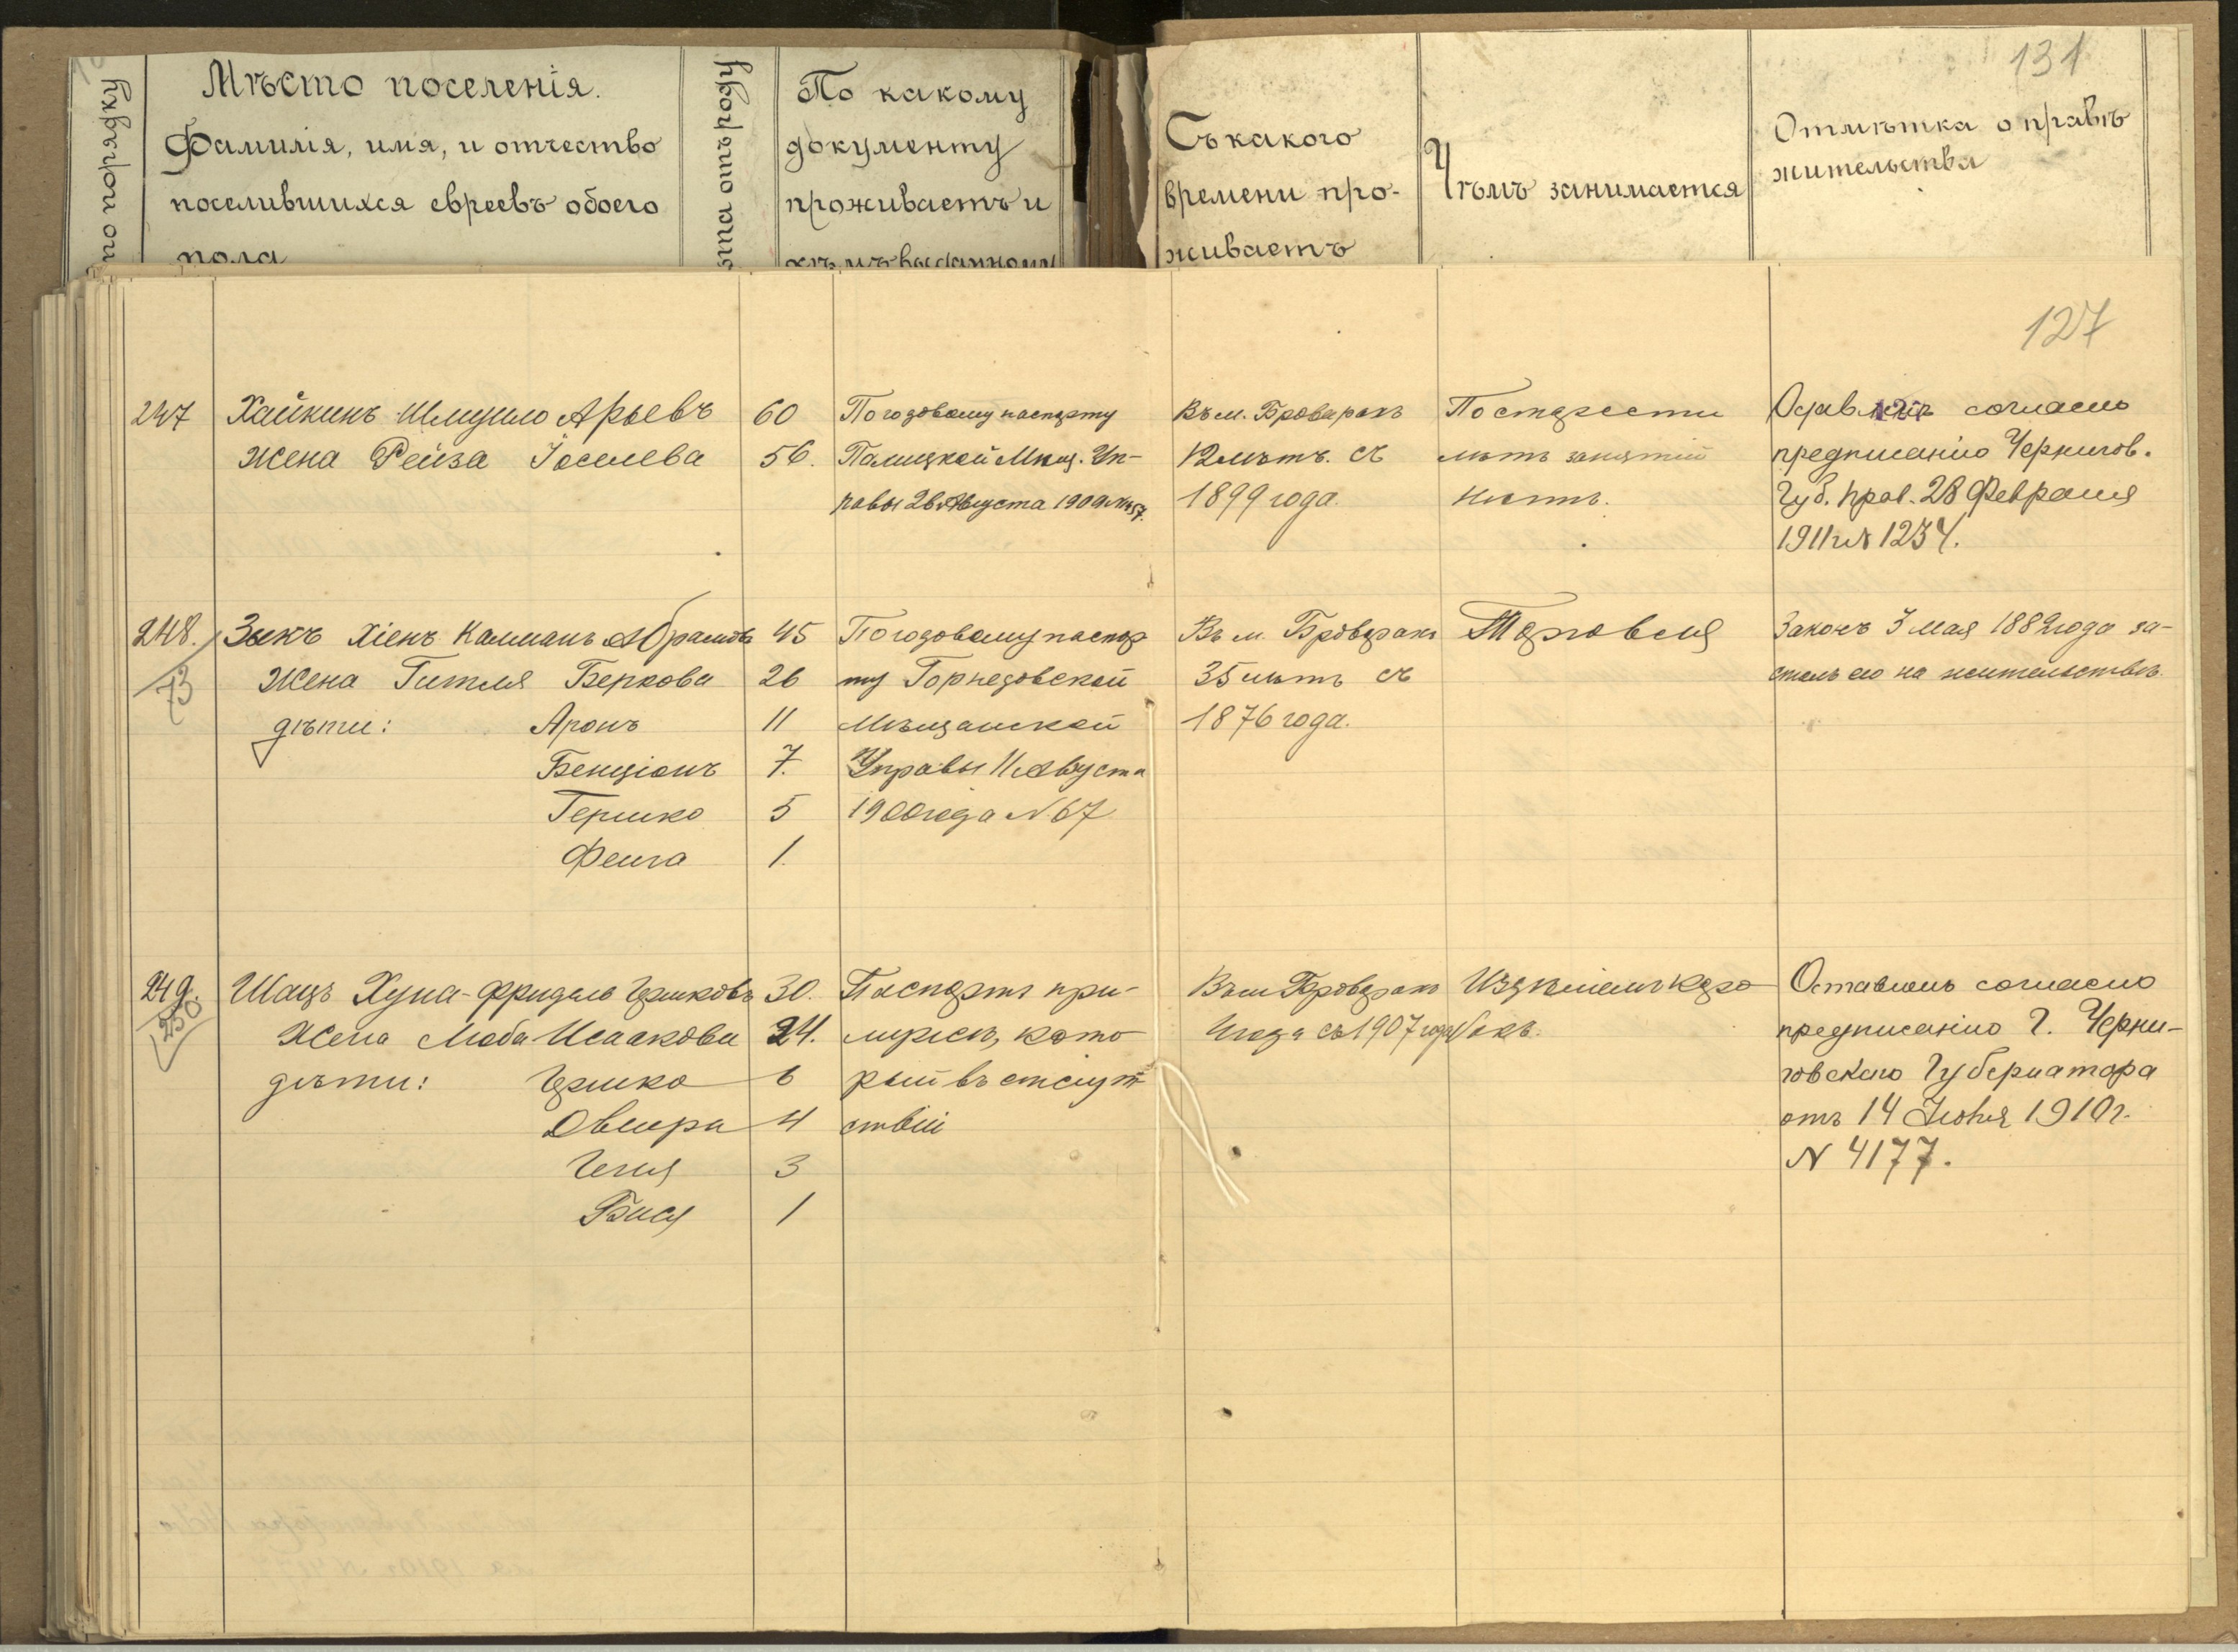 131
по порядку
Мѣсто поселенія.
Фамилія, имя, и отчество
поселившихся евреевъ обоего
пола
отъ роду
По какому
документу
проживаетъ и
кѣмъ выданному
Съ какого
времени про-
живаетъ
Чѣмъ занимается
Отмѣтка о правѣ
жительства
127
247
Хайкинъ Шмуйло Арьевъ
60
Жена Рейза Іоселева
56.
По годовому паспорту
Мѣщ. Уп-
равы 26 Августа
Въ м. Броварахъ
12 лѣтъ. съ
1899 года.
По старости
лѣтъ занятій
нѣтъ.
согласно
предписанію Чернигов.
Губ. Прав. 28 Февраля
1911 г. № 1234.
248.
73
Зыкъ Хіенъ Калманъ Абрамовъ
45
Жена Гитля Беркова
26
дѣти: Аронъ
11
Бенціонъ
7.
Гершко
5
Фейга
1.
По годовому паспор
ту
Мѣщанской
Управы 11 Августа
1900 года № 67
Въ м. Броварахъ
35 лѣтъ съ
1876 года.
Торговля
Законъ 3 мая 1882 года за-
сталъ его на жительствѣ.
249.
250
Шацъ Хуна-Фридель Гершковъ
30.
Жена Люба Исаакова
24.
дѣти: Гершко
6
Двейра
4
Геня
3
Бися
1
Паспортъ при-
лирск, кото
рый въ отсут
ствіи
Въ м. Броварахъ
4 года съ 1907 года
Издѣліемъ коро
бокъ.
Оставленъ согласно
предписанію Г. Черни-
говскаго Губернатора
отъ 14 Іюня 1910 г.
N 4177.